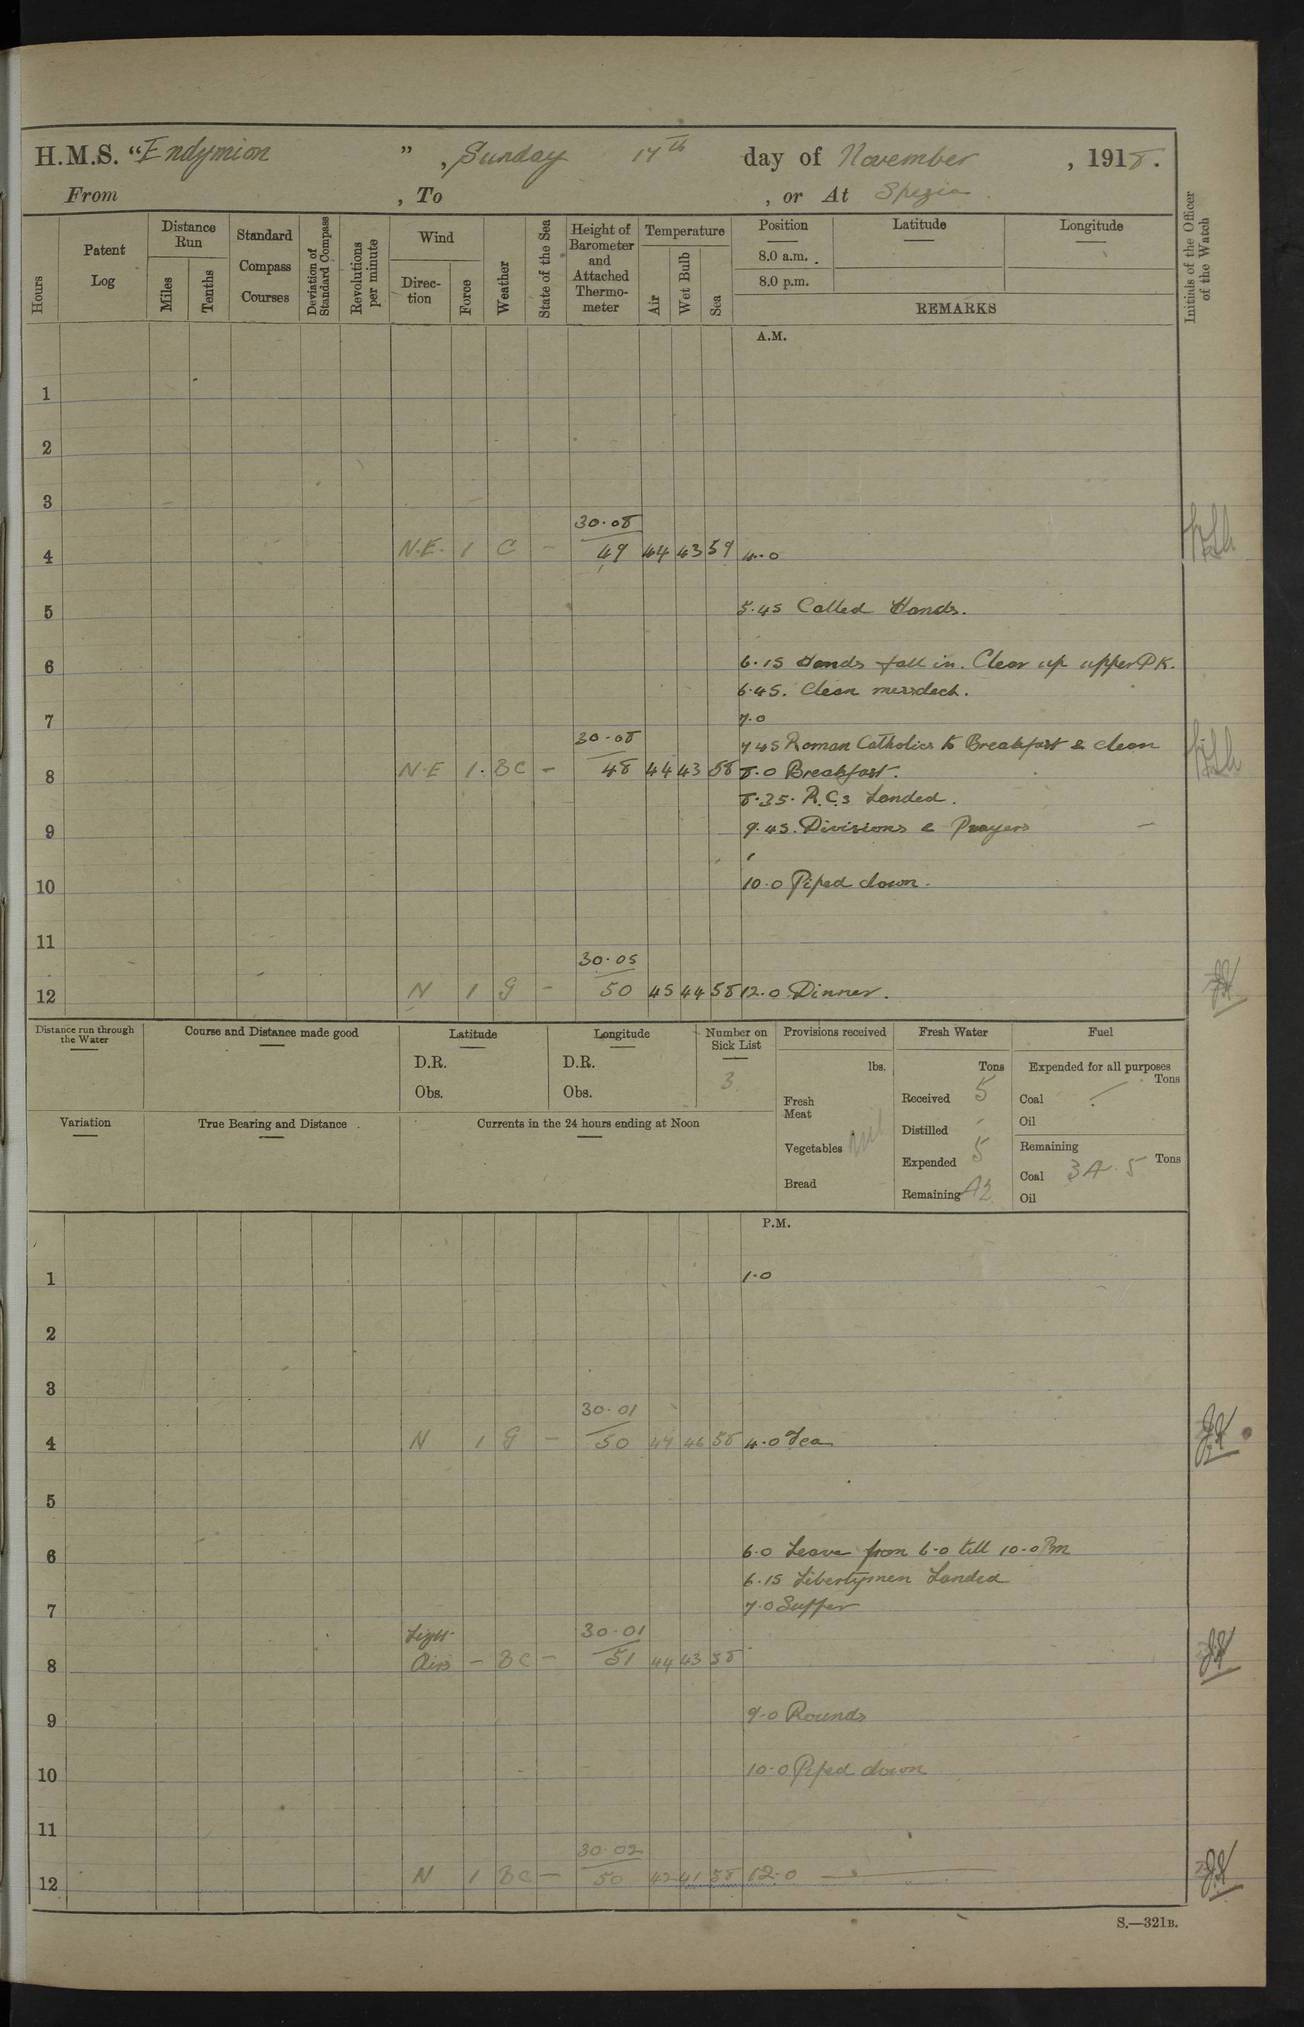 H.M.S. "Endymion", Sunday 17th day of November, 1918.
From , To , or At Spezia
Hours
Patent Log
Distance Run
Miles
Tenths
Standard Compass Courses
Deviation of Standard Compass
Revolutions per minute
Wind
Direction
Force
Weather
State of the Sea
Height of Barometer and Attached Thermometer
Temperature
Air
Wet Bulb
Sea
Position
8.0 a.m.
8.0 p.m.
Latitude
Longitude
REMARKS
Initials of the Officer of the Watch
A.M.
1
2
3
30.08
4 N.E. 1 C - 49 44 43 59 4.0
5 5.45 Called Hands.
6 6.15 Hands fall in. Clear up upper DK.
6.45. Clean messdeck.
7 7.0
30.08 7 45 Roman Catholics to Breakfast & clean
8 N.E 1. BC - 48 44 43 58 8.0 Breakfast.
8.35. R.C.s Landed.
9 9.45. Divisions & Prayers
10 10.0 Piped down.
11
30.05
12 N 1 G - 50 45 44 58 12.0 Dinner.
Distance run through the Water
Course and Distance made good
Latitude
D.R.
Obs.
Longitude
D.R.
Obs.
Number on Sick List
3
Provisions received
lbs.
Fresh Meat
Vegetables nil
Bread
Fresh Water
Tons
Received 5
Distilled
Expended 5
Remaining 42
Fuel
Expended for all purposes
Tons
Coal
Oil
Remaining
Tons
Coal 34.5
Oil
Variation
True Bearing and Distance
Currents in the 24 hours ending at Noon
P.M.
1 1.0
2
3
30.01
4 N 1 G - 50 47 46 58 4.0 Tea
5
6 6.0 Leave from 6.0 till 10.0 Pm
6.15 Libertymen Landed
7 7.0 Supper
Light 30.01
8 Airs - BC - 51 44 43 58
9 9.0 Rounds
10 10.0 Piped down
11
30.02
12 N 1 BC - 50 42 41 58 12.0
S.—321B.